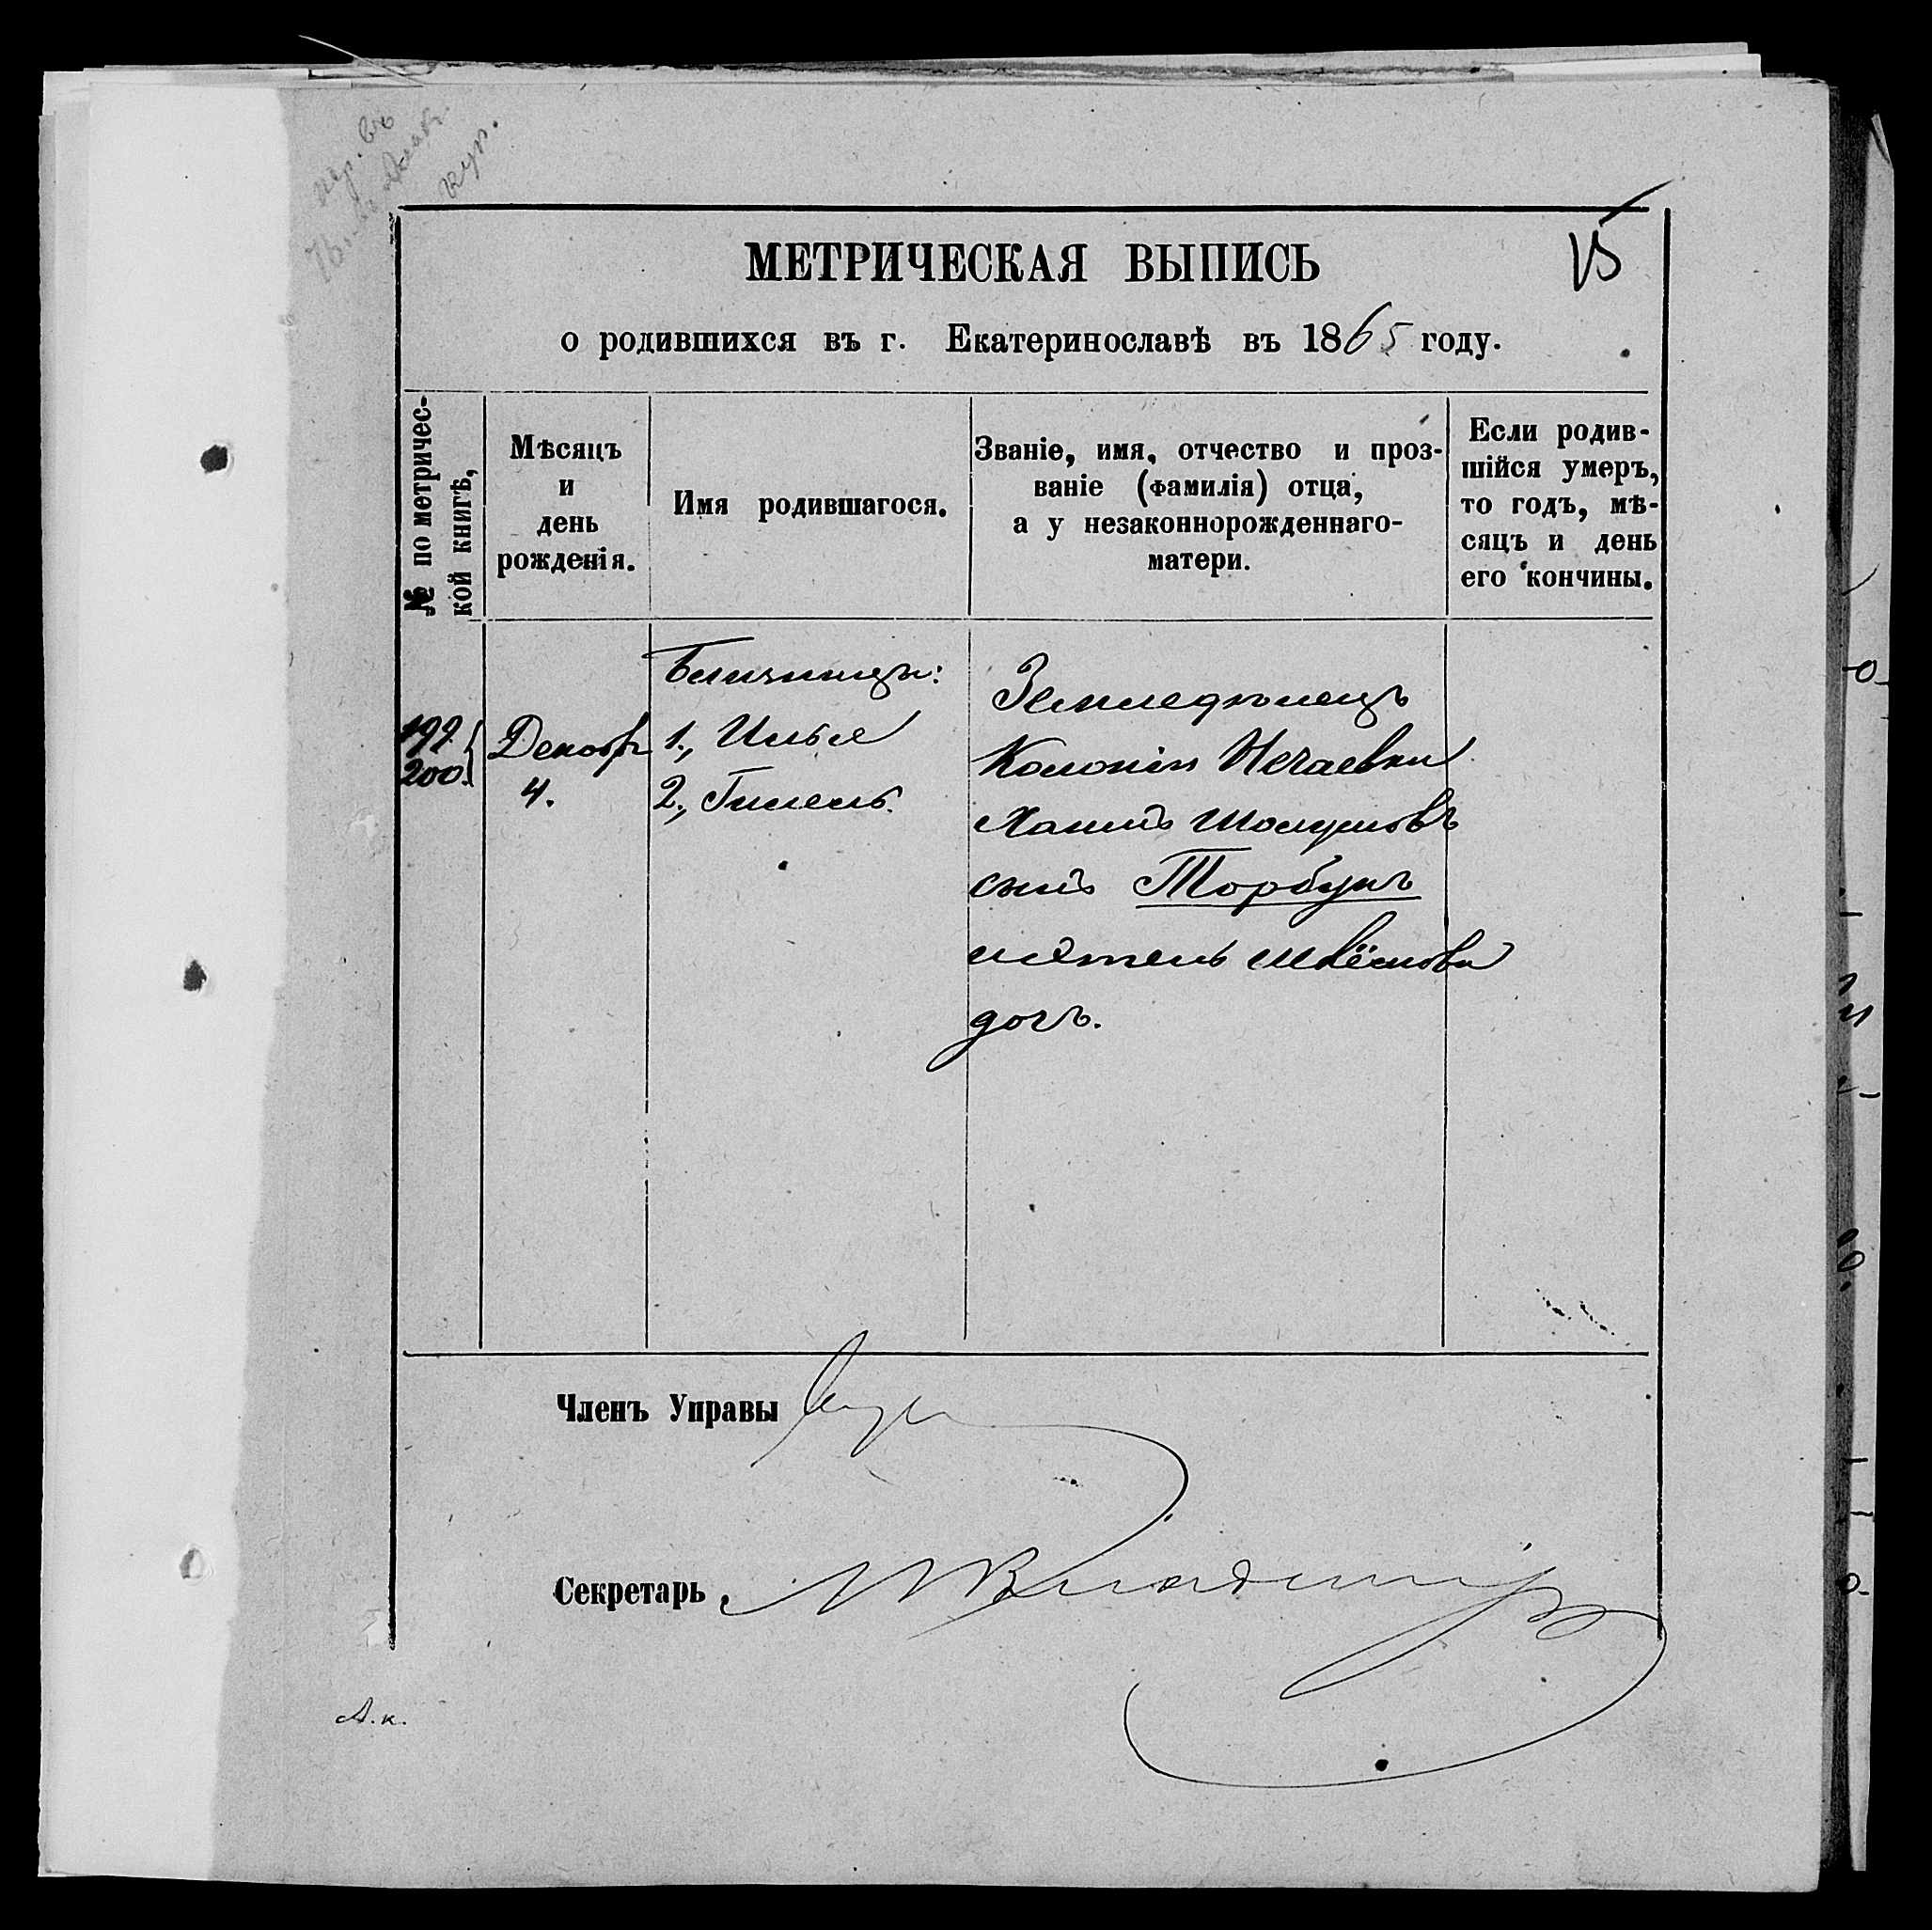 15
МЕТРИЧЕСКАЯ ВЫПИСЬ
о родившихся въ г. Екатеринославѣ въ 1865 году.
№ по метричес-
кой книгѣ,
Мѣсяцъ
и
день
рожденія.
Имя родившагося.
Званіе, имя, отчество и проз-
ваніе (фамилія) отца,
а у незаконнорожденнаго-
матери.
Если родив-
шійся умеръ,
то годъ, мѣ-
сяцъ и день
его кончины.
199
200.
Декабр
4.
Близнецы:
1., Илья
2., Гилель.
Земледѣлецъ
Колоніи Нечаевки
Хаимъ
Торбунъ
дочь.
Членъ Управы
Секретарь
А.к.